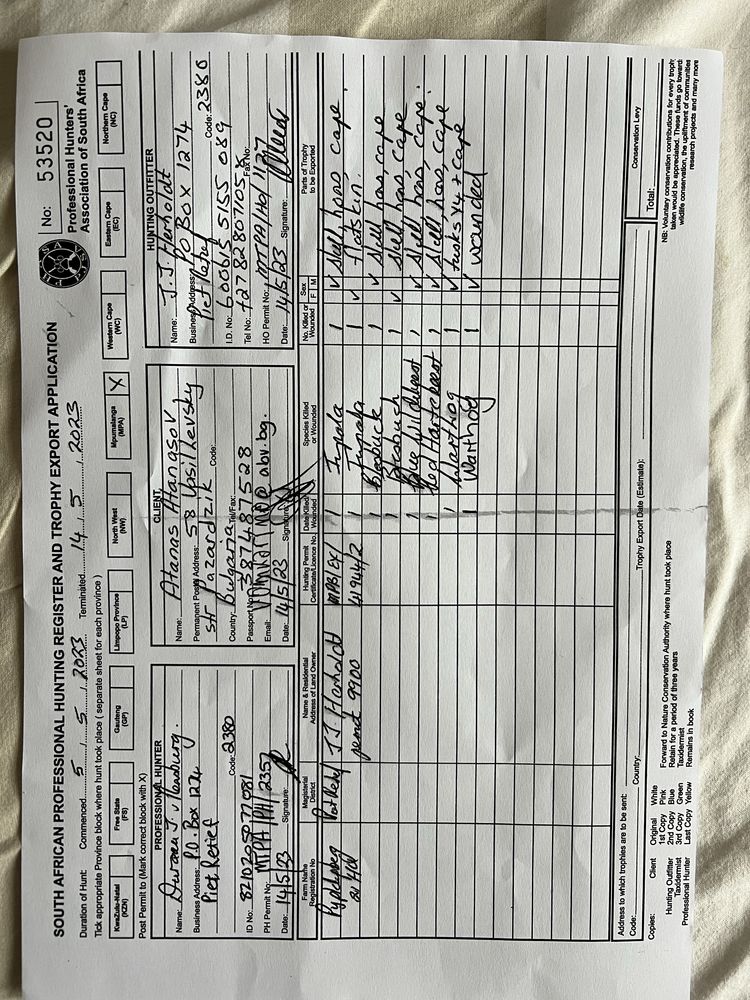 No: 53520
Professional Hunters'
Association of South Africa
SOUTH AFRICAN PROFESSIONAL HUNTING REGISTER AND TROPHY EXPORT APPLICATION
Duration of Hunt: Commenced 5 / 5 / 2023 Terminated 14 / 5 / 2023
Tick appropriate Province block where hunt took place ( separate sheet for each province )
KwaZulu-Natal (KZN) Free State (FS) Gauteng (GP) Limpopo Province (LP) North West (NW) Mpumalanga (MPA) X Western Cape (WC) Eastern Cape (EC) Northern Cape (NC)
Post Permit to (Mark correct block with X)
PROFESSIONAL HUNTER
Name:
Business Address: P.O. Box 1274
Piet Retief
Code: 2380
ID No:
PH Permit No: MTPA/PH/2357
Date: 14/5/23 Signature:
CLIENT
Name: Atanas Atanasov
Permanent Postal Address: 58 Vasil Levsky
Code:
Country: Bulgaria Tel/Fax:
Passport No: 387487528
Email: abv.bg.
Date: 14/5/23 Signature
HUNTING OUTFITTER
Name: J.J. Herholdt
Business Address: PO Box 1274
Piet Retief Code: 2380
I.D. No: 600615 5155 089
Tel No: +27828071057 Fax No:
HO Permit No: MTPA/HO/
Date: 14/5/23 Signature:
Farm Name Registration No Magisterial District Name & Residential Address of Land Owner Hunting Permit Certificate/Licence No. Date Killed/ Wounded Species Killed or Wounded No. Killed or Wounded Sex F M Parts of Trophy to be Exported
Piet Retief JJ Herholdt 1 Impala 1 ✓ skull, horns, cape.
1 Impala 1 ✓ flatskin.
1 Blesbuck 1 ✓ skull, horns, cape
1 1 ✓ skull, horns, cape
1 Blue Wildebeest 1 ✓ skull, horns, cape.
1 Red Hartebeest 1 ✓ skull, horns, cape
1 Warthog 1 ✓ tusks x4 + cape
1 Warthog 1 ✓ wounded
Address to which trophies are to be sent:
Code: Country: Trophy Export Date (Estimate): Conservation Levy
Total:
Copies: Client Original White Forward to Nature Conservation Authority where hunt took place
Hunting Outfitter 1st Copy Pink Retain for a period of three years
Taxidermist 2nd Copy Blue Taxidermist
Professional Hunter 3rd Copy Green Remains in book
Last Copy Yellow
NB: Voluntary conservation contributions for every trophy
taken would be appreciated. These funds go towards
wildlife conservation, the upliftment of communities
research projects and many more